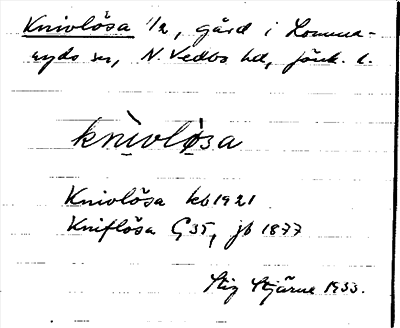 Knivlösa 1/2, gård i Lommar-
ryds sn, N. Vedbo hd, Jönk. l.
knìvlø̀sa
Knivlösa kb 1921
Kniflösa G35, jb 1877
Stig Stjärne 1933.